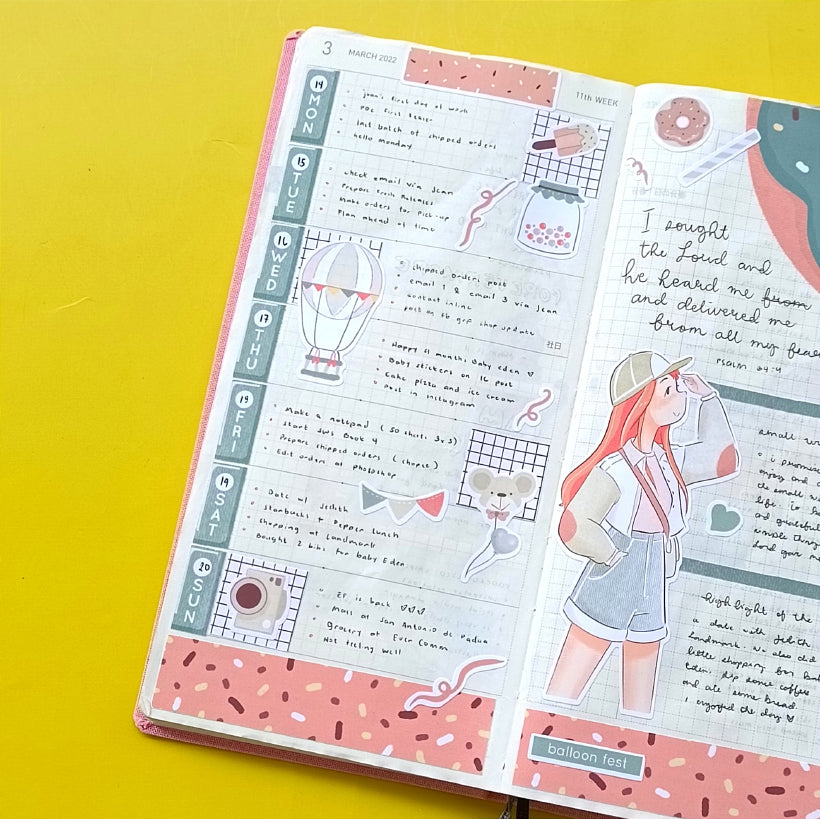 3
MARCH 2022
11th WEEK
14
MON
first day of work
last batch of shipped orders
hello monday
15
TUE
check email via Jean
Prepare Fresh Releases
Make orders for pick-up
Plan ahead of time
16
WED
shipped orders post
email 1 & email 3 via Jean
contact inline
post on fb grp shop update
社日
17
THU
Happy 11 months Baby Eden
Baby stickers on 16 post
Cake pizza and ice cream
Post in Instagram
19
FRI
Make a notepad ( 50 sheets 3x3 )
Start Book 4
Prepare shipped orders
Edit orders at photoshop
19
SAT
Date w/ Jedith
Starbucks + Pepper Lunch
Shopping at Landmark
Bought 2 bibs for baby Eden
20
SUN
is back
Mass at San Antonio de Padua
Grocery at Ever Comm
Not feeling well
I sought
the Lord and
he heard me from
and delivered me
from all my
Psalm 34:4
small
i
enjoy and
the small
life. to
and grateful
simple
Lord gave me
highlight of the
a date with Jedith
landmark. we also did
little shopping for
Eden, sip some coffee
and ate some bread.
I enjoyed the day
balloon fest